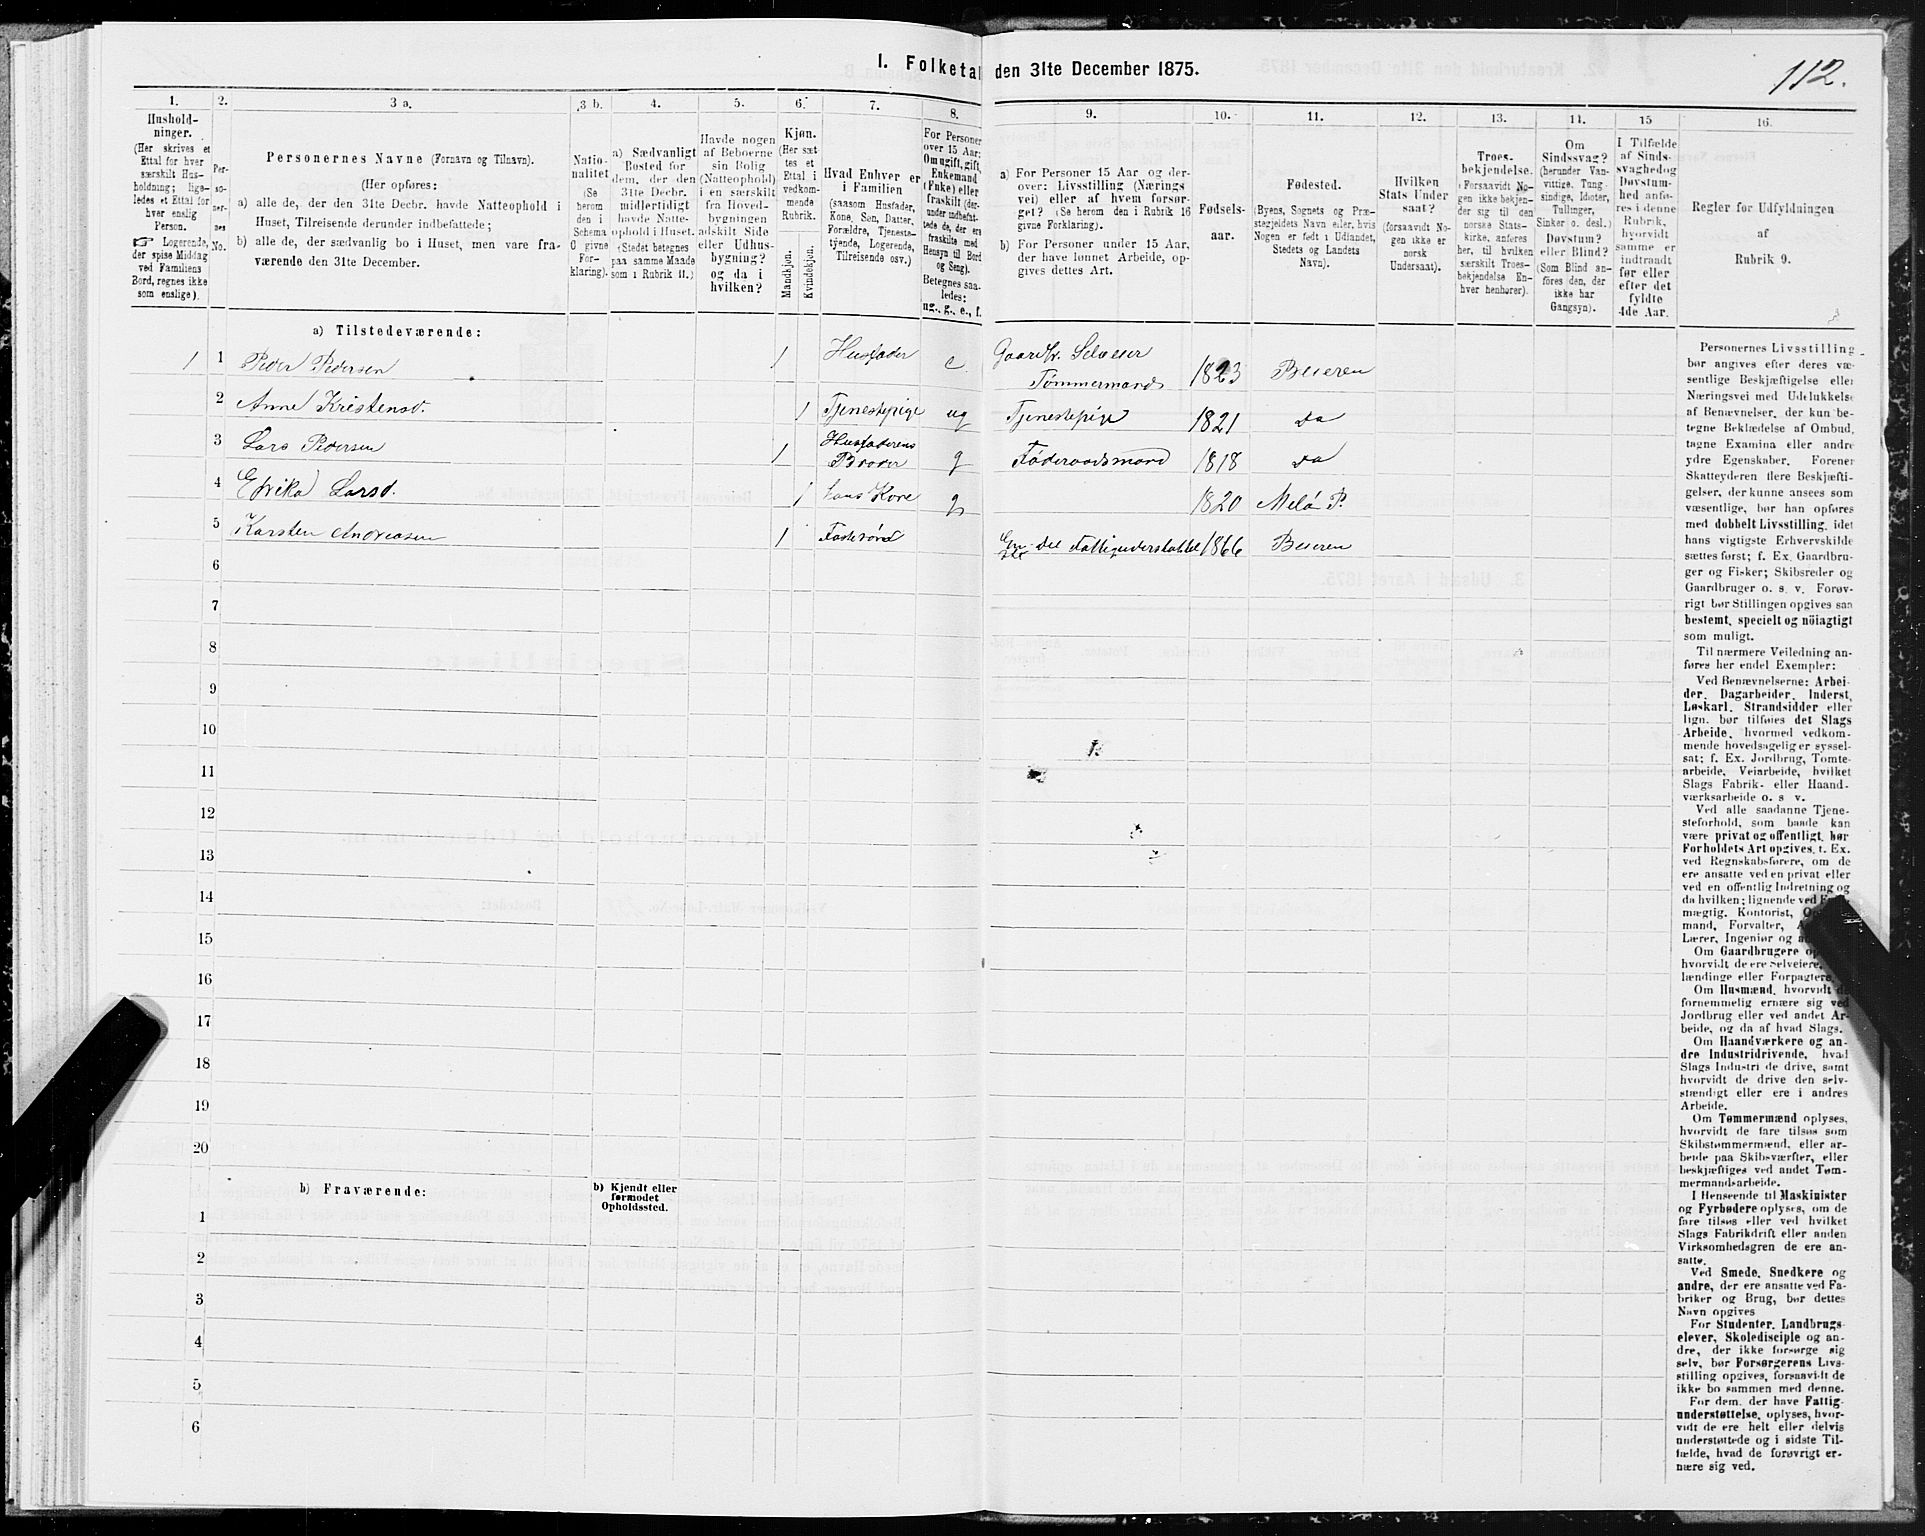 1. Folketal den 31te December 1875.
112.
1.
Hushold-
ninger.
(Her skrives et
Ettal for hver
særskilt Hus-
holdning; lige-
ledes et Ettal for
hver enslig
Person.
☞ Logerende,
der spise Middag
ved Familiens
Bord, regnes ikke
som enslige).
2.
Per-
so-
ner-
nes
No.
3 a.
Personernes Navne (Fornavn og Tilnavn).
(Her opføres:
a) alle de, der den 31te Decbr. havde Natteophold i
Huset, Tilreisende derunder indbefattede;
b) alle de, der sædvanlig bo i Huset, men vare fra-
værende den 31te December.
3 b.
Natio-
nalitet
(Se
herom
den i
Schema
C givne
For-
klaring).
4.
a) Sædvanligt
Bosted for
dem, der den
31te Decbr.
midlertidigt
havde Natte-
ophold i Huset.
(Stedet betegnes
paa samme Maade
som i Rubrik 11.)
5.
Havde nogen
af Beboerne
sin Bolig
(Natteophold)
i en særskilt
fra Hoved-
bygningen
adskilt Side
eller Udhus-
bygning?
og da i
hvilken?
6.
Kjøn.
(Her sæt-
tes et
Ettal i
vedkom-
mende
Rubrik.
Mandkjøn.
Kvindekjøn.
7.
Hvad Enhver er
i Familien
(saasom Husfader,
Kone, Søn, Datter,
Forældre, Tjeneste-
tjende, Logerende,
Tilreisende osv.)
8.
For Personer
over 15 Aar:
Om ugift, gift,
Enkemand
(Enke) eller
fraskilt (der-
under indbefat-
tede de, der ere
fraskilte med
Hensyn til Bord
og Seng).
Betegnes saa-
ledes:
ug., g., e., f.
9.
a) For Personer 15 Aar og der-
over: Livsstilling (Nærings
vei) eller af hvem forsør-
get? (Se herom den i Rubrik 16
givne Forklaring).
b) For Personer under 15 Aar,
der have lønnet Arbeide, op-
gives dettes Art.
10.
Fødsels-
aar.
11.
Fødested.
(Byens, Sognets og Præ-
stegjeldets Navn eller, hvis
Nogen er født i Udlandet,
Stedets og Landets
Navn).
12.
Hvilken
Stats Under
saat?
(forsaavidt No-
gen ikke er
norsk
Undersaat).
13.
Troes-
bekjendelse.
(Forsaavidt No-
gen ikke bekjen-
der sig til den
norske Stats-
kirke, anføres
her, til hvilken
særskilt Troes-
bekjendelse En-
hver henhører).
14.
Om
Sindssvag?
(herunder Van-
vittige, Tung-
sindige, Idioter,
Tullinger,
Sinker o. desl.)
Døvstum?
eller Blind?
(Som Blind an-
føres den, der
ikke har
Gangsyn).
15
I Tilfælde
af Sinds-
svaghed og
Døvstum-
hed anfø-
res i denne
Rubrik,
hvorvidt
samme er
indtraadt
før eller
efter det
fyldte
4de Aar.
16.
Regler for Udfyldningen
af
Rubrik 9.
a) Tilstedeværende:
1 1 Peder Pedersen 1 Husfader e Gaardbr. Selveier
Tømmermand 1823 Beieren
2 Anne Kristensd. 1 Tjenestepige ug Tjenestepige 1821 da
3 Lars Pedersen 1 Husfaderens
Broder g Føderaadsmand 1818 da
4 Efrika Larsd. 1 hans Kone g 1820 Melø P.
5 Karsten Andreasen 1 Fostersøn del Fattigunderstøttet 1866 Beieren
6
7
8
9
10
11
12
13
14
15
16
17
18
19
20
b) Fraværende:
b) Kjendt eller
formodet
Opholdssted.
1
2
3
4
5
6
Personernes Livsstilling
bør angives efter deres væ-
sentlige Beskjæftigelse eller
Næringsvei med Udelukkelse
af Benævnelser, der kun be-
tegne Beklædelse af Ombud,
tagne Examina eller andre
ydre Egenskaber. Forener
Skatteyderen flere Beskjæfti-
gelser, der kunne ansees som
væsentlige, bør han opføres
med dobbelt Livsstilling, idet
hans vigtigste Erhvervskilde
sættes først; f. Ex. Gaardbru-
ger og Fisker; Skibsreder og
Gaardbruger o. s. v. Forøv-
rigt bør Stillingen opgives saa
bestemt, specielt og nöiagtigt
som muligt.
Til nærmere Veiledning an-
føres her endel Exempler:
Ved Benævnelserne: Arbei-
der, Dagarbeider, Inderst,
Løskarl, Strandsidder eller
lign. bør tilføies det Slags
Arbeide, hvormed vedkom-
mende hovedsagelig er syssel-
sat; f. Ex. Jordbrug, Tomte-
arbeide, Veiarbeide, hvilket
Slags Fabrik- eller Haand-
værksarbeide o. s v.
Ved alle saadanne Tjene-
steforhold, som baade kan
være privat og offentligt, bør
Forholdets Art opgives, f. Ex.
ved Regnskabsførere, om de
ere ansatte ved en privat eller
ved en offentlig Indretning og
da hvilken; lignende ved
mægtig, Kontorist,
mand, Forvalter,
Lærer, Ingeniør og
Om Gaardbrugere
hvorvidt de ere Selveiere,
lændinge eller Forpagtere.
Om Husmænd, hvorvidt de
fornemmelig ernære sig ved
Jordbrug eller ved andet Ar-
beide, og da af hvad Slags.
Om Haandværkere og an-
dre Industridrivende, hvad
Slags Industri de drive, samt
hvorvidt de drive den selv-
stændigt eller ere i andres
Arbeide.
Om Tømmermænd oplyses,
hvorvidt de fare tilsøs som
Skibstømmermænd, eller ar-
beide paa Skibsværfter, eller
beskjæftiges ved andet Tøm-
mermandsarbeide.
I Henseende til Maskinister
og Fyrbødere oplyses, om de
fare tilsøs eller ved hvilket
Slags Fabrikdrift eller anden
Virksomhedsgren de ere an-
satte.
Ved Smede, Snedkere og
andre, der ere ansatte ved Fa-
briker og Brug, bør dettes
Navn opgives
For Studenter, Landbrugs-
elever, Skoledisciple og an-
dre, der ikke forsørge sig
selv, bør Forsørgerens Livs-
stilling opgives, forsaavidt de
ikke bo sammen med denne.
For dem, der have Fattig-
understøttelse, oplyses, hvor-
vidt de ere helt eller delvis
understøttede og i sidste Til-
fælde, hvad de forøvrigt er-
nære sig ved.